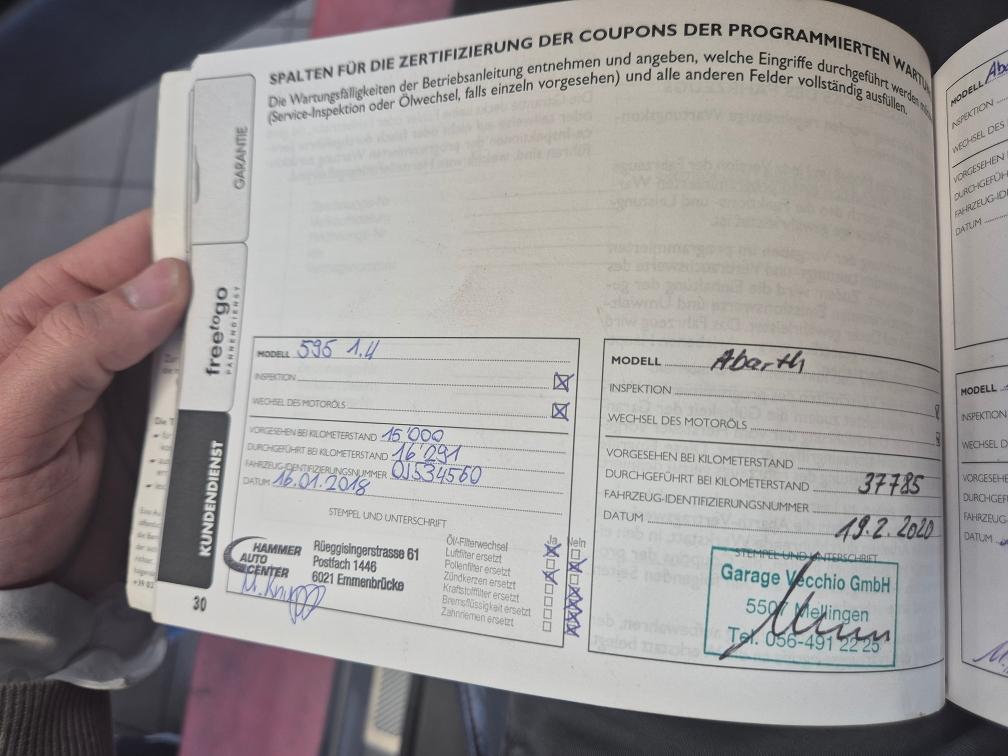 SPALTEN FÜR DIE ZERTIFIZIERUNG DER COUPONS DER PROGRAMMIERTEN
Die Wartungsfälligkeiten der Betriebsanleitung entnehmen und angeben, welche Eingriffe durchgeführt werden
(Service-Inspektion oder Ölwechsel, falls einzeln vorgesehen) und alle anderen Felder vollständig ausfüllen.
GARANTIE
freetogo
PANNENDIENST
KUNDENDIENST
MODELL 595 1.4
INSPEKTION
WECHSEL DES MOTORÖLS
VORGESEHEN BEI KILOMETERSTAND 15'000
DURCHGEFÜHRT BEI KILOMETERSTAND 16'291
FAHRZEUG-IDENTIFIZIERUNGSNUMMER 0J534560
DATUM 16.01.2018
STEMPEL UND UNTERSCHRIFT
HAMMER AUTO CENTER
Rüeggisingerstrasse 61
Postfach 1446
6021 Emmenbrücke
Ja Nein
Öl-/Filterwechsel
Luftfilter ersetzt
Pollenfilter ersetzt
Zündkerzen ersetzt
Kraftstofffilter ersetzt
Bremsflüssigkeit ersetzt
Zahnriemen ersetzt
30
MODELL Abarth
INSPEKTION
WECHSEL DES MOTORÖLS
VORGESEHEN BEI KILOMETERSTAND
DURCHGEFÜHRT BEI KILOMETERSTAND 37785
FAHRZEUG-IDENTIFIZIERUNGSNUMMER
DATUM 19.2.2020
STEMPEL UND UNTERSCHRIFT
Garage Vecchio GmbH
5507 Mellingen
Tel. 056-491 22 25
MODELL
INSPEKTION
WECHSEL DES
VORGESEHEN
DATUM
MODELL
INSPEKTION
WECHSEL
DATUM